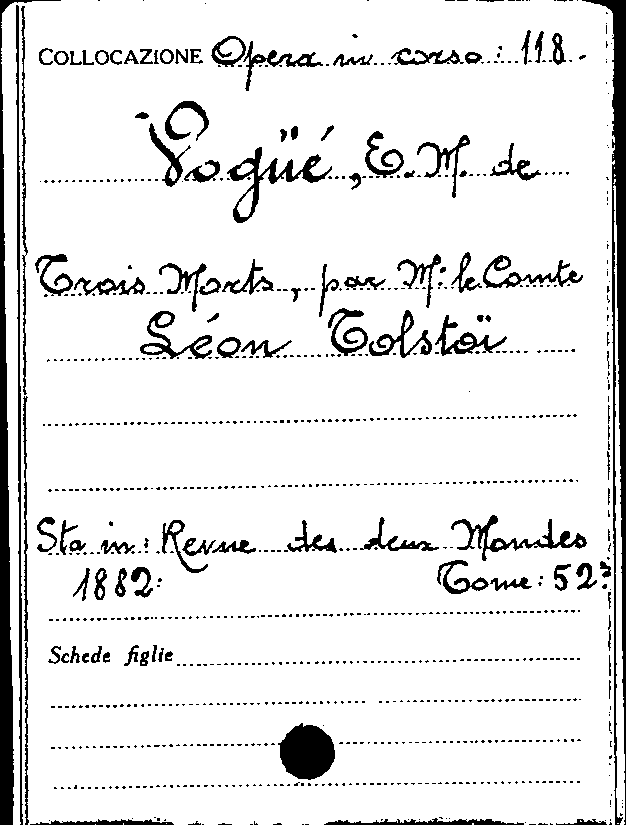 COLLOCAZIONE Opera in corso: 118.
Vogüé, E. M. de
Trois Morts, par M. le Comte
Léon Tolstoï
Sta in: Revue des deux Mondes
1882: Tome: 52º
Schede figlie